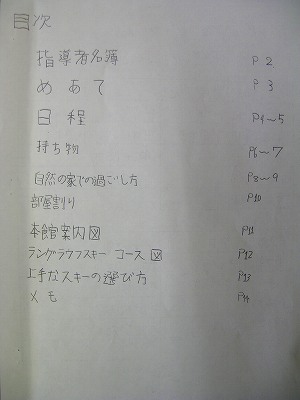 目次
指導者名簿 P2
めあて P3
日程 P4〜5
持ち物 P6〜7
自然の家での過ごし方 P8〜9
部屋割り P10
本館案内図 P11
ラングラウフスキー コース図 P12
上手なスキーの選び方 P13
メモ P14